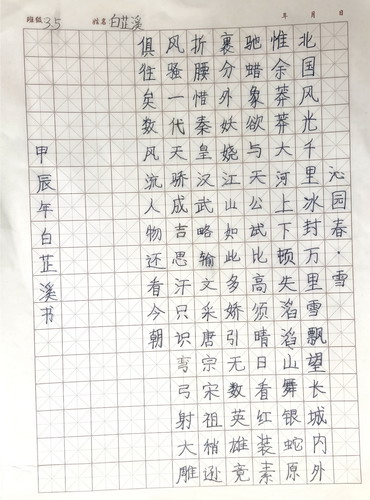 班级 3.5 姓名 白芷溪 年 月 日
沁园春·雪
北国风光千里冰封万里雪飘望长城内外
惟余莽莽大河上下顿失滔滔山舞银蛇原
驰蜡象欲与天公试比高须晴日看红装素
裹分外妖娆江山如此多娇引无数英雄竞
折腰惜秦皇汉武略输文采唐宗宋祖稍逊
风骚一代天骄成吉思汗只识弯弓射大雕
俱往矣数风流人物还看今朝
甲辰年白芷溪书